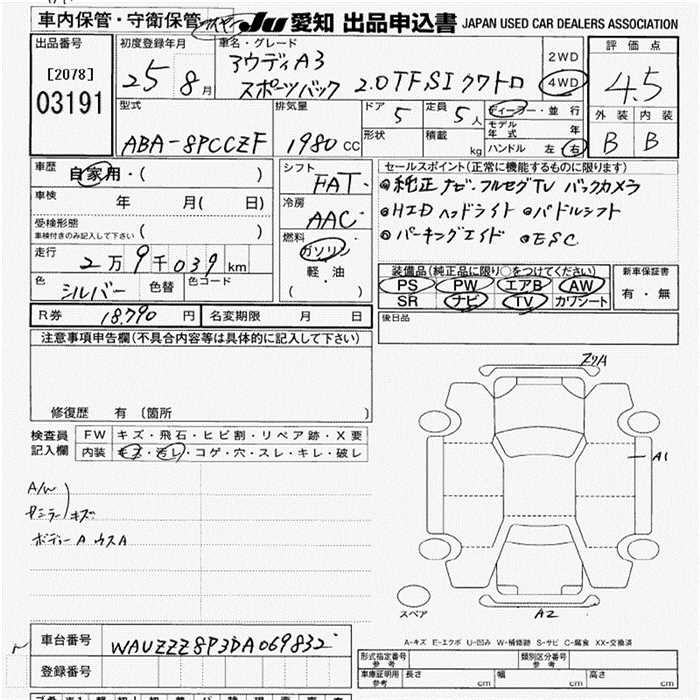 車内保管・守衛保管 JU 愛知 出品申込書 JAPAN USED CAR DEALERS ASSOCIATION
出品番号
[2078]
03191
初度登録年月
25 8月
車名・グレード
アウディA3
スポーツバック 2.0TFSI クワトロ
2WD
4WD
評価点
4.5
外装 内装
B B
型式
ABA-8PCCZF
排気量
1980 cc
ドア 5
定員 5人
形状
積載 kg
ディーラー・並行
モデル年式 年
ハンドル 左 右
車歴
自家用・( )
車検
年 月( 日)
受検形態
車検付きのみ記入して下さい ( )
走行
2万9千039km
色
シルバー
色替
色コード
シフト
FAT
冷房
AAC
燃料
ガソリン
軽・油
( )
セールスポイント(正常に機能するものに限ります)
◎純正ナビ・フルセグTV バックカメラ
◎HID ヘッドライト ◎パドルシフト
◎パーキングエイド ◎ESC
装備品(純正品に限り○をつけてください)
PS PW エアB AW
SR ナビ TV カワシート
新車保証書
有・無
後日品
R券 18,790 円
名変期限 月 日
注意事項申告欄(不具合内容等は具体的に記入して下さい)
修復歴 有 〔箇所 〕
検査員記入欄
FW キズ・飛石・ヒビ割・リペア跡・X要
内装 キズ・汚レ・コゲ・穴・スレ・キレ・破レ
A/W
キズ
ボディーA ウスA
A1
A2
スペア
A-キズ E-エクボ U-凹み W-補修跡 S-サビ C-腐食 XX-交換済
車台番号 WAUZZZ8P3DA069832
登録番号
型式指定番号
参考
類別区分番号
参考
車庫証明用
参考
長さ cm 幅 cm 高さ cm